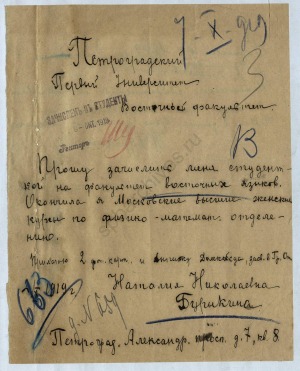 7-X-919
Петроградский
Первый Университет
Восточный факультет.
ЗАЧИСЛЕН В СТУДЕНТЫ
Ректор
В
Прошу зачислить меня студент-
кой на факультет восточных языков.
Окончила я Московские высшие женские
курсы по физико-математ. отделе-
нию.
Прилагаю 2 фот. карт. и выписку
1919 г. Наталия Николаевна
Бурикина
683
д. N
Петроград. Александр. просп. д. 7, кв. 8.